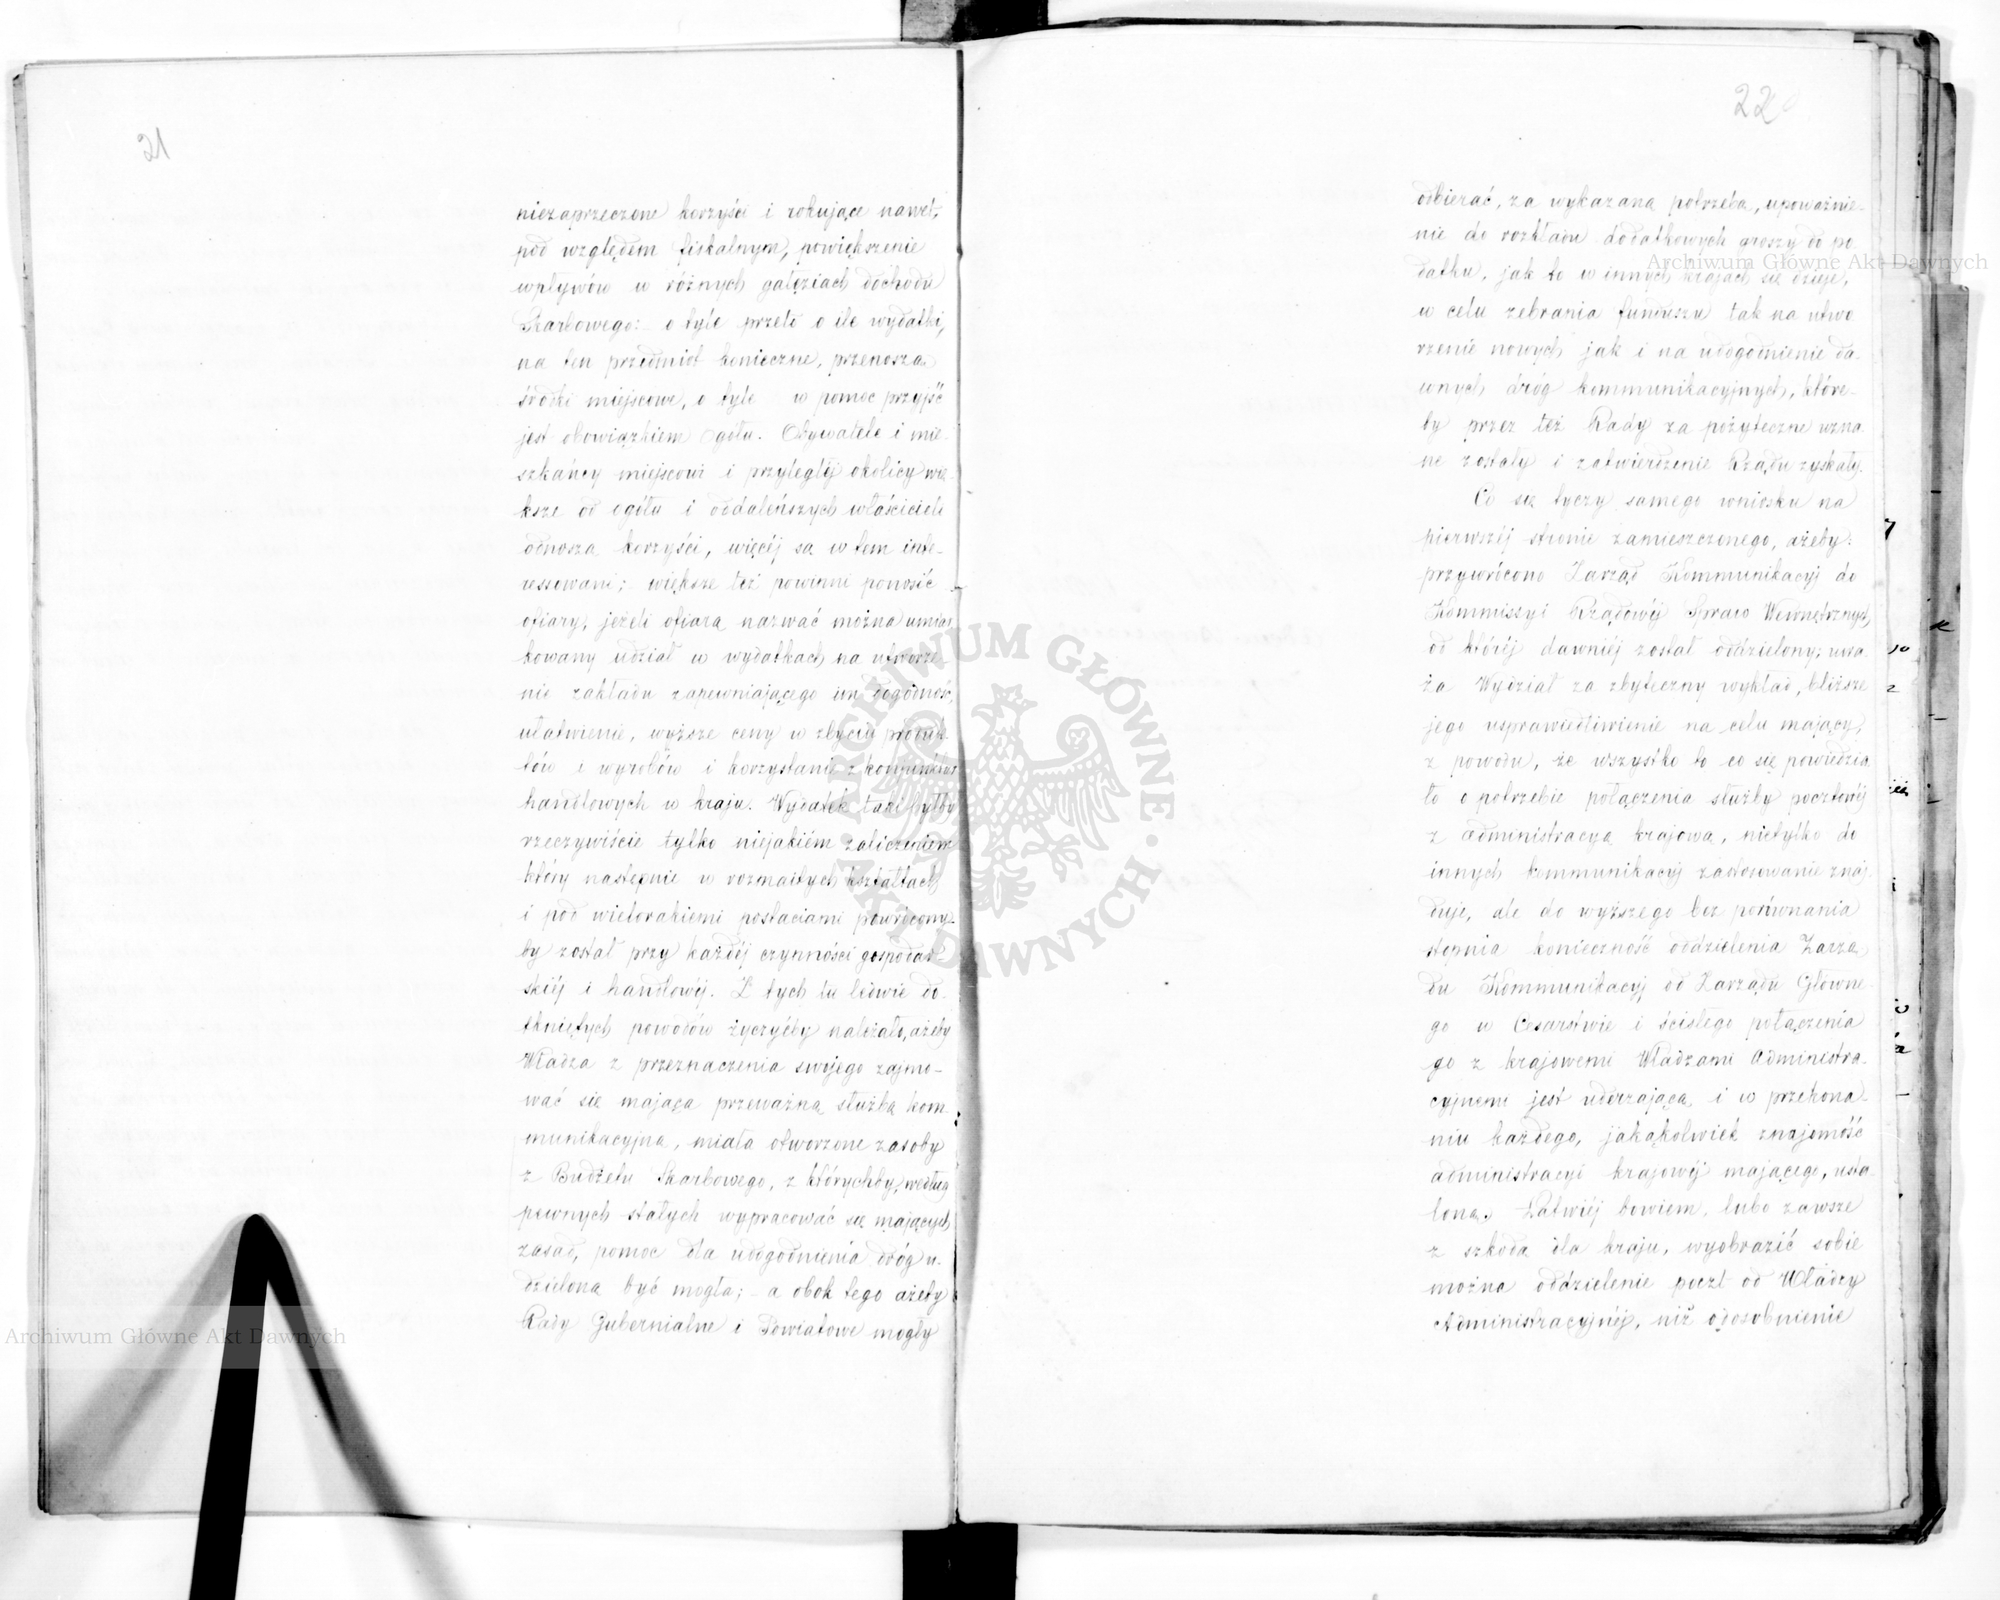 21
niezaprzeczone korzyści i rokujące nawet,
pod względem fiskalnym, powiększenie
wpływów w różnych gałęziach dochodu
Skarbowego: o tyle przeto o ile wydatki,
na ten przedmiot konieczne, przenoszą
środki miejscowe, o tyle w pomoc przyjść
jest obowiązkiem ogółu. Obywatele i mie-
szkańcy miejscowi i przyległéj okolicy wię-
ksze od ogółu i oddaleńszych właścicieli
odnoszą korzyści, więcéj są w tem inte-
ressowani; większe też powinni ponosić
ofiary, jeżeli ofiarą nazwać można umiar
kowany udział w wydatkach na utworze-
nie zakładu zapewniającego im dogodność,
ułatwienie, wyższe ceny w zbyciu produk-
tów i wyrobów i korzystanie z konjunktur
handlowych w kraju. Wydatek taki byłby
rzeczywiście tylko niejakiém zaliczeniem
który następnie w rozmaitych kształtach
i pod wielorakiemi postaciami powrócony-
by został przy każdéj czynności gospodar-
skiéj i handlowéj. Z tych tu ledwie do-
tkniętych powodów życzyćby należało, ażeby
Władza z przeznaczenia swojego zajmo-
wać się mająca przeważną służbą kom-
munikacyjną, miała otworzone zasoby
z Budżetu Skarbowego, z którychby, według
pewnych stałych wypracować się mających
zasad, pomoc dla udogodnienia dróg u-
dzieloną być mogła; - a obok tego ażeby
Rady Gubernialne i Powiatowe mogły
22
odbierać, za wykazaną potrzebą, upoważnie-
nie do rozkładu dodatkowych groszy do po-
datku, jak to w innych krajach się dzieje,
w celu zebrania funduszu tak na utwo
rzenie nowych jak i na udogodnienie da-
wnych dróg kommunikacyjnych, które-
by przez też Rady za pożyteczne uzna
ne zostały i zatwierdzenie Rządu zyskały.
Co się tyczy samego wniosku na
pierwszéj stronie zamieszczonego, ażeby:
przywrócono Zarząd Kommunikacyj do
Kommissyi Rządowéj Spraw Wewnętrznych,
od któréj dawniéj został oddzielony; uwa-
ża Wydział za zbyteczny wykład, bliższe
jego usprawiedliwienie na celu mający,
z powodu, że wszystko to co się powiedzia
ło o potrzebie połączenia służby pocztowéj
z administracyą krajową, nietylko do
innych kommunikacyj zastosowanie znaj-
duje, ale do wyższego bez porównania
stopnia konieczność oddzielenia Zarzą
du Kommunikacyj od Zarządu Główne-
go w Cesarstwie i ścisłego połączenia
go z krajowemi Władzami administra-
cyjnemi jest uderzającą i w przekona-
niu każdego, jakąkolwiek znajomość
administracyi krajowéj mającego, usta-
loną. Łatwiéj bowiem, lubo zawsze
z szkodą dla kraju, wyobrazić sobie
można oddzielenie poczt od Władzy
Administracyjnéj, niż odosobnienie
Archiwum Główne Akt Dawnych
Archiwum Główne Akt Dawnych
ARCHIWUM GŁÓWNE AKT DAWNYCH